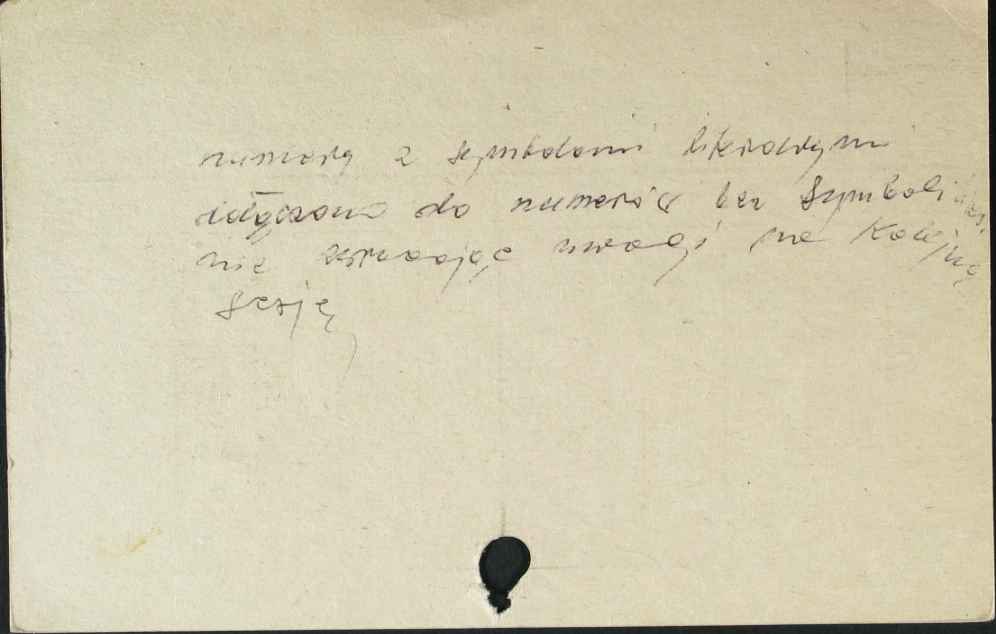 numery z symbolami literowymi
włączono do numerów bez symboli
nie zwracając uwagi na kolejną
serję